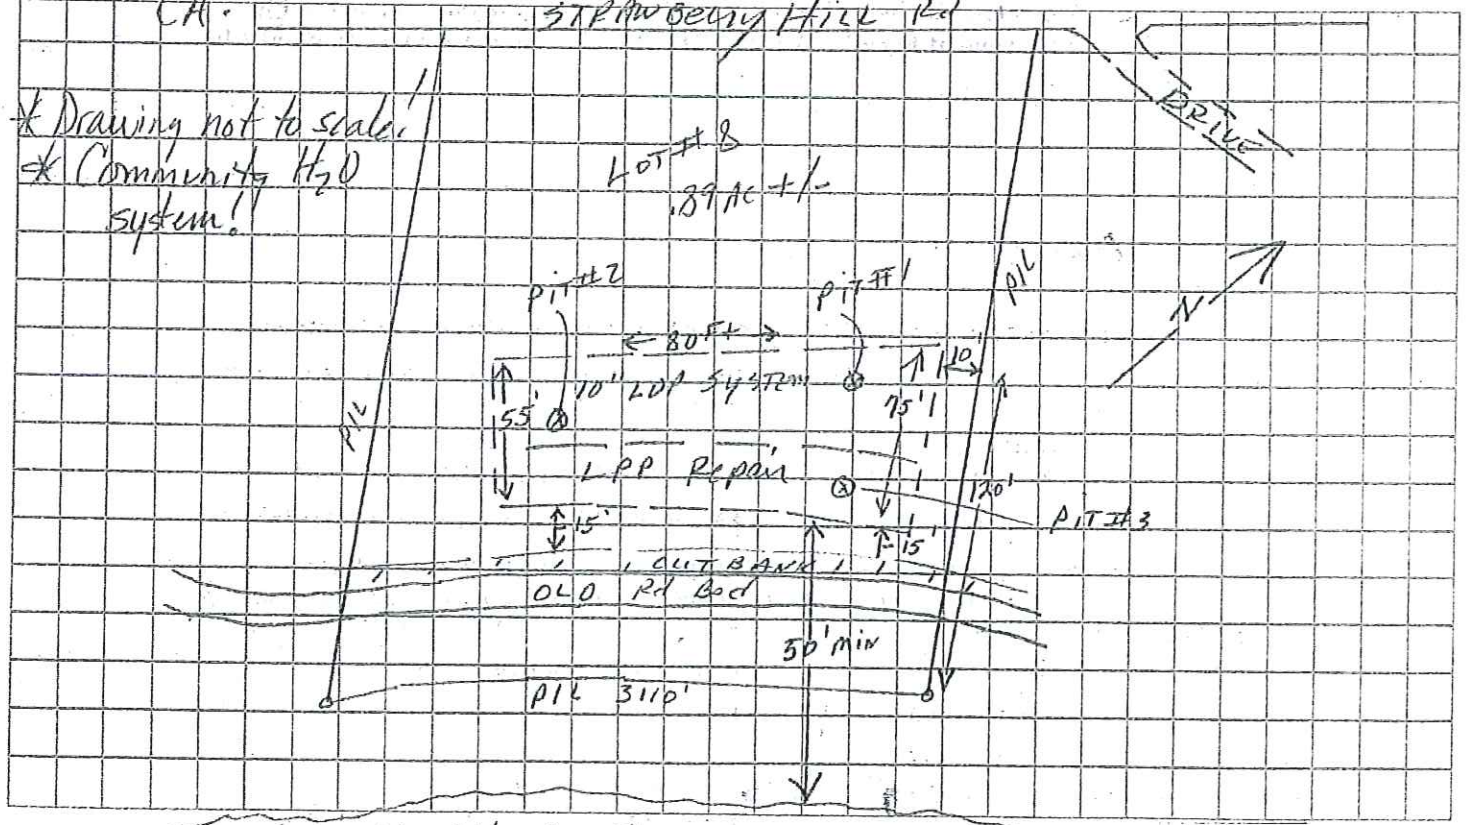 Strawberry Hill Rd
* Drawing not to scale!
* Community H2O
system!!
DRIVE
Lot # 8
.89 AC +/-
Pit #2
Pit #1
P/L
N
80 Ft
10'
10' LDP System
55'
75'
P/L
LPP Repair
120'
Pit #3
15'
15'
CUT BANK
OLD Rd Bed
50' min
P/L 3110'